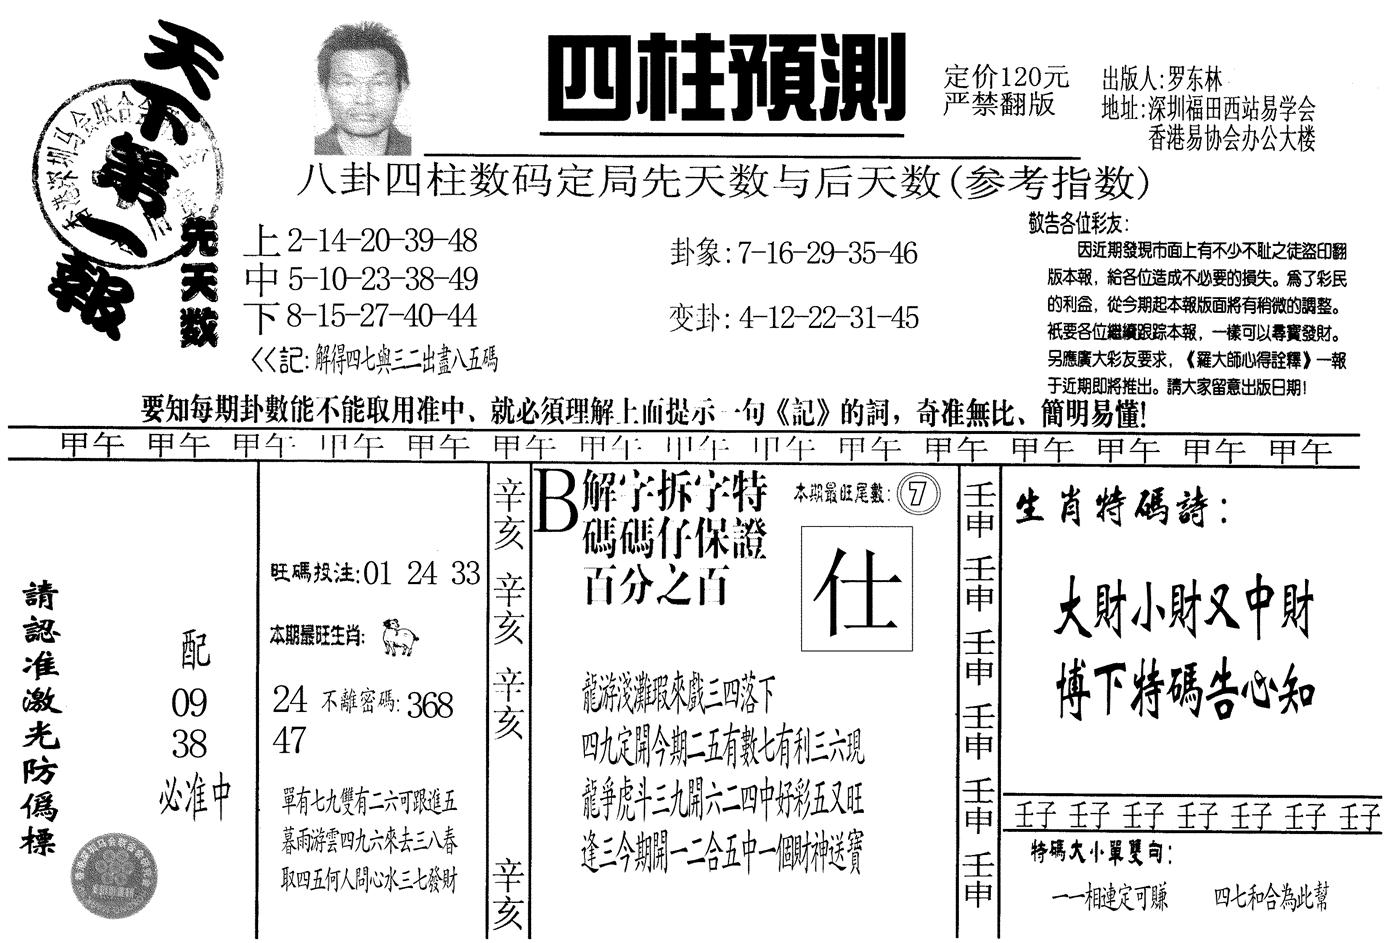 天下第一報
先天数
四柱預測
定价120元
严禁翻版
出版人:罗东林
地址:深圳福田西站易学会
香港易协会办公大楼
八卦四柱数码定局先天数与后天数(参考指数)
上 2-14-20-39-48
中 5-10-23-38-49
下 8-15-27-40-44
<<記:解得四七與三二出盡八五碼
卦象:7-16-29-35-46
变卦:4-12-22-31-45
敬告各位彩友:
因近期發現市面上有不少不耻之徒盜印翻
版本報，給各位造成不必要的損失。為了彩民
的利益，從今期起本報版面將有稍微的調整。
衹要各位繼續跟踪本報，一樣可以尋寶發財。
另應廣大彩友要求，《羅大師心得詮釋》一報
于近期即將推出。請大家留意出版日期!
要知每期卦數能不能取用准中、就必須理解上面提示一句《記》的詞，奇准無比、簡明易懂!
甲午 甲午 甲午 甲午 甲午 甲午 甲午 甲午 甲午 甲午 甲午 甲午 甲午 甲午 甲午
請認准激光防僞標
配
09
38
必准中
旺碼投注:01 24 33
本期最旺生肖:
24 不離密碼:368
47
單有七九雙有二六可跟進五
暮雨游雲四九六來去三八春
取四五何人問心水三七發財
辛亥 辛亥 辛亥 辛亥
B解字拆字特
碼碼仔保證
百分之百
本期最旺尾數:7
仕
龍游淺灘瑕來戲三四落下
四九定開今期二五有數七有利三六現
龍爭虎斗三九開六二四中好彩五又旺
逢三今期開一二合五中一個財神送寶
壬申 壬申 壬申 壬申 壬申 壬申
生肖特碼詩:
大財小財又中財
博下特碼告心知
壬子 壬子 壬子 壬子 壬子 壬子 壬子
特碼大小單雙句:
一一相連定可賺 四七和合為此幫